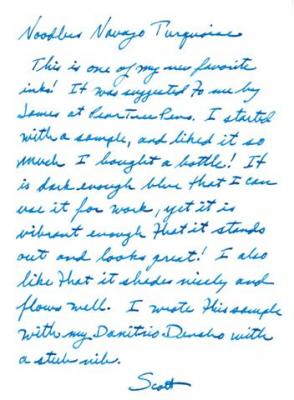 Noodlers Navajo Turquoise
This is one of my new favorite
inks! It was suggested to me by
James at PearTreePens. I started
with a sample, and liked it so
much I bought a bottle! It
is dark enough blue that I can
use it for work, yet it is
vibrant enough that it stands
out and looks great! I also
like that it shades nicely and
flows well. I wrote this sample
with my Danitrio Densho with
a stub nib.
Scott